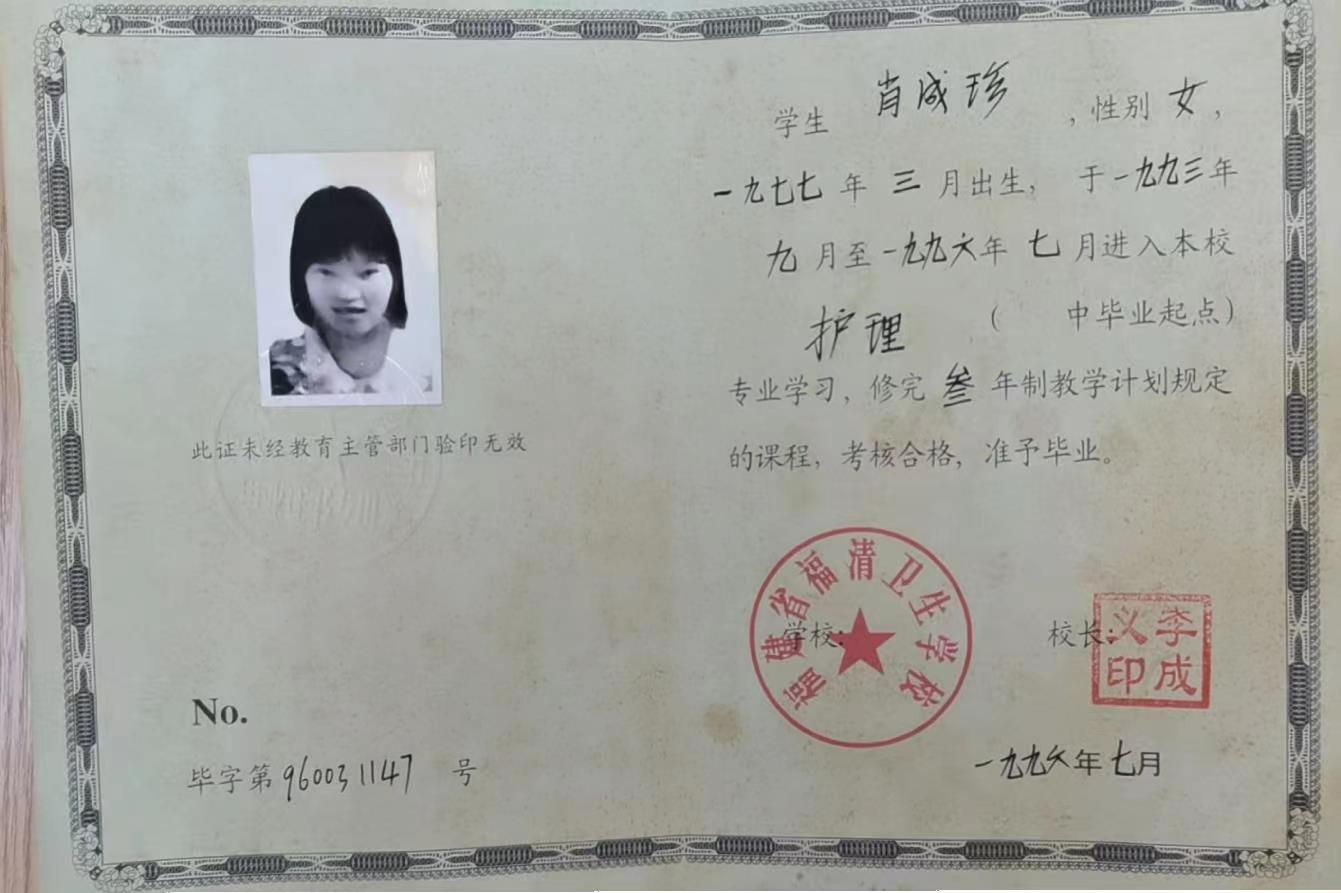 此证未经教育主管部门验印无效
No.
毕字第960031147号
学生 肖成珍，性别 女，
一九七七年 三月出生， 于一九九三年
九月至一九九六年 七月进入本校
护理 （ 中毕业起点）
专业学习，修完 叁 年制教学计划规定
的课程，考核合格，准予毕业。
福建省福清卫生学校
学校：
校长：
李成义印
一九九六年七月